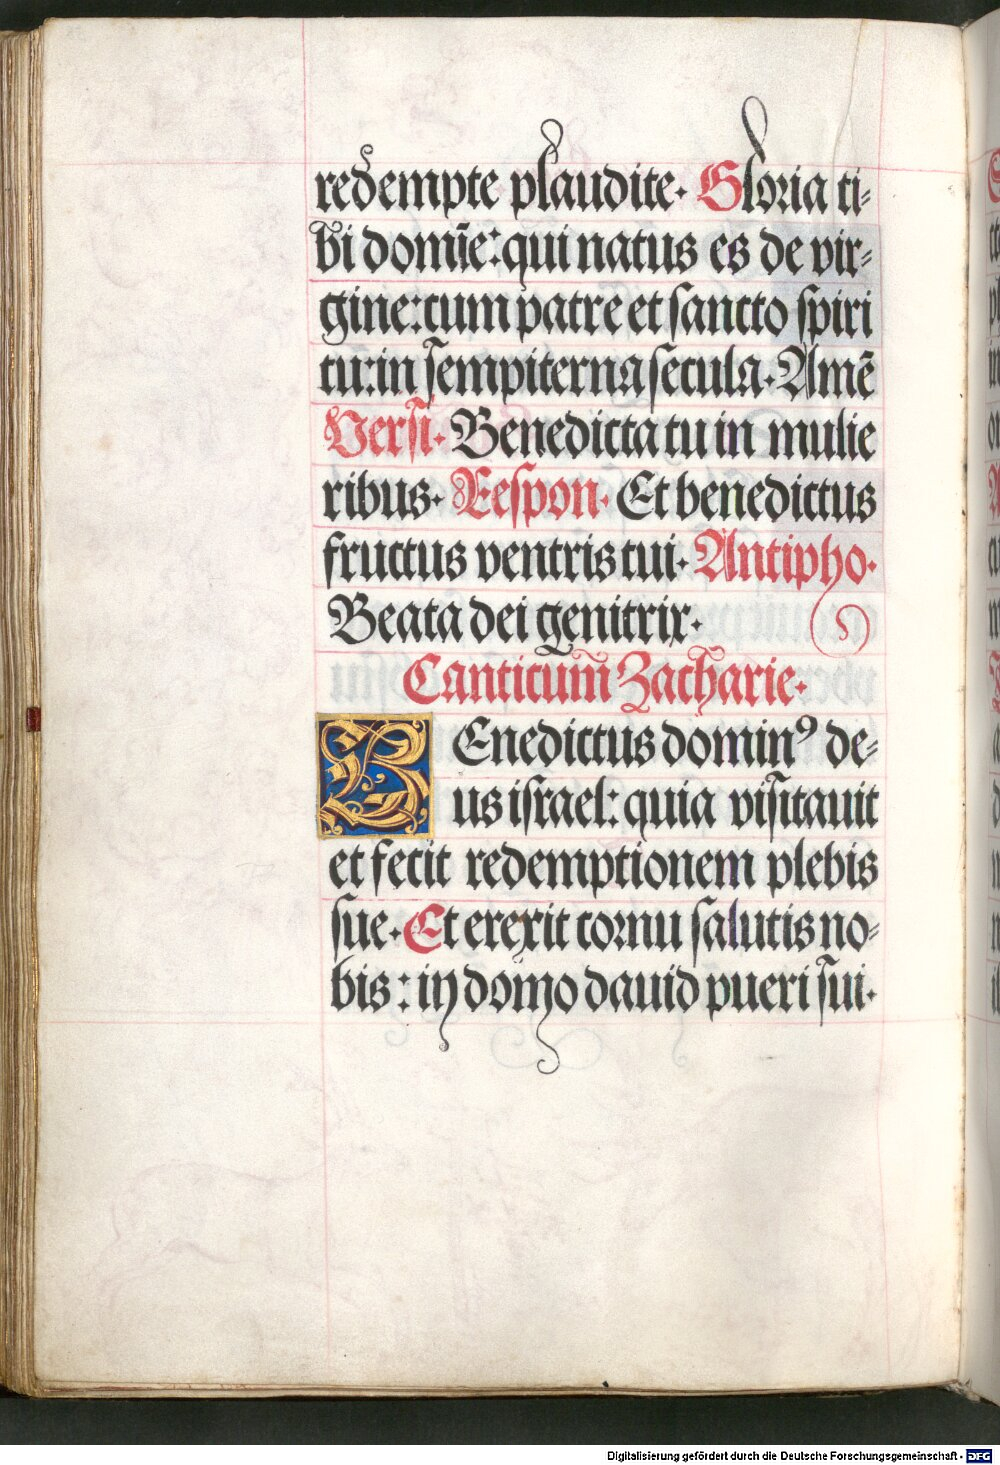 redempte plaudite. Gloria ti⸗
bi domīe: qui natus es de vir⸗
gine: cum patre et sancto spiri
tu: in sempiterna secula. Amē
Versi. Benedicta tu in mulie
ribus. Respon. Et benedictus
fructus ventris tui. Antipho.
Beata dei genitrix.
Canticum̄ Zacharie.
BEnedictus dominꝰ de⸗
us israel: quia visitauit
et fecit redemptionem plebis
sue. Et erexit cornu salutis no⸗
bis: in domo dauid pueri sui.
Digitalisierung gefördert durch die Deutsche Forschungsgemeinschaft - DFG